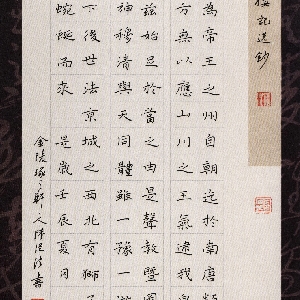 樓記選鈔
為帝王之州自朝迄於南唐類
方無以應山川之王氣逮我皇
茲始於當之由是聲教暨罔
神穆清與天同體雖一豫一遊
下後世法京城之西北有獅子
蜿蜒而來 是歲壬辰夏月
金陵 人陳 書